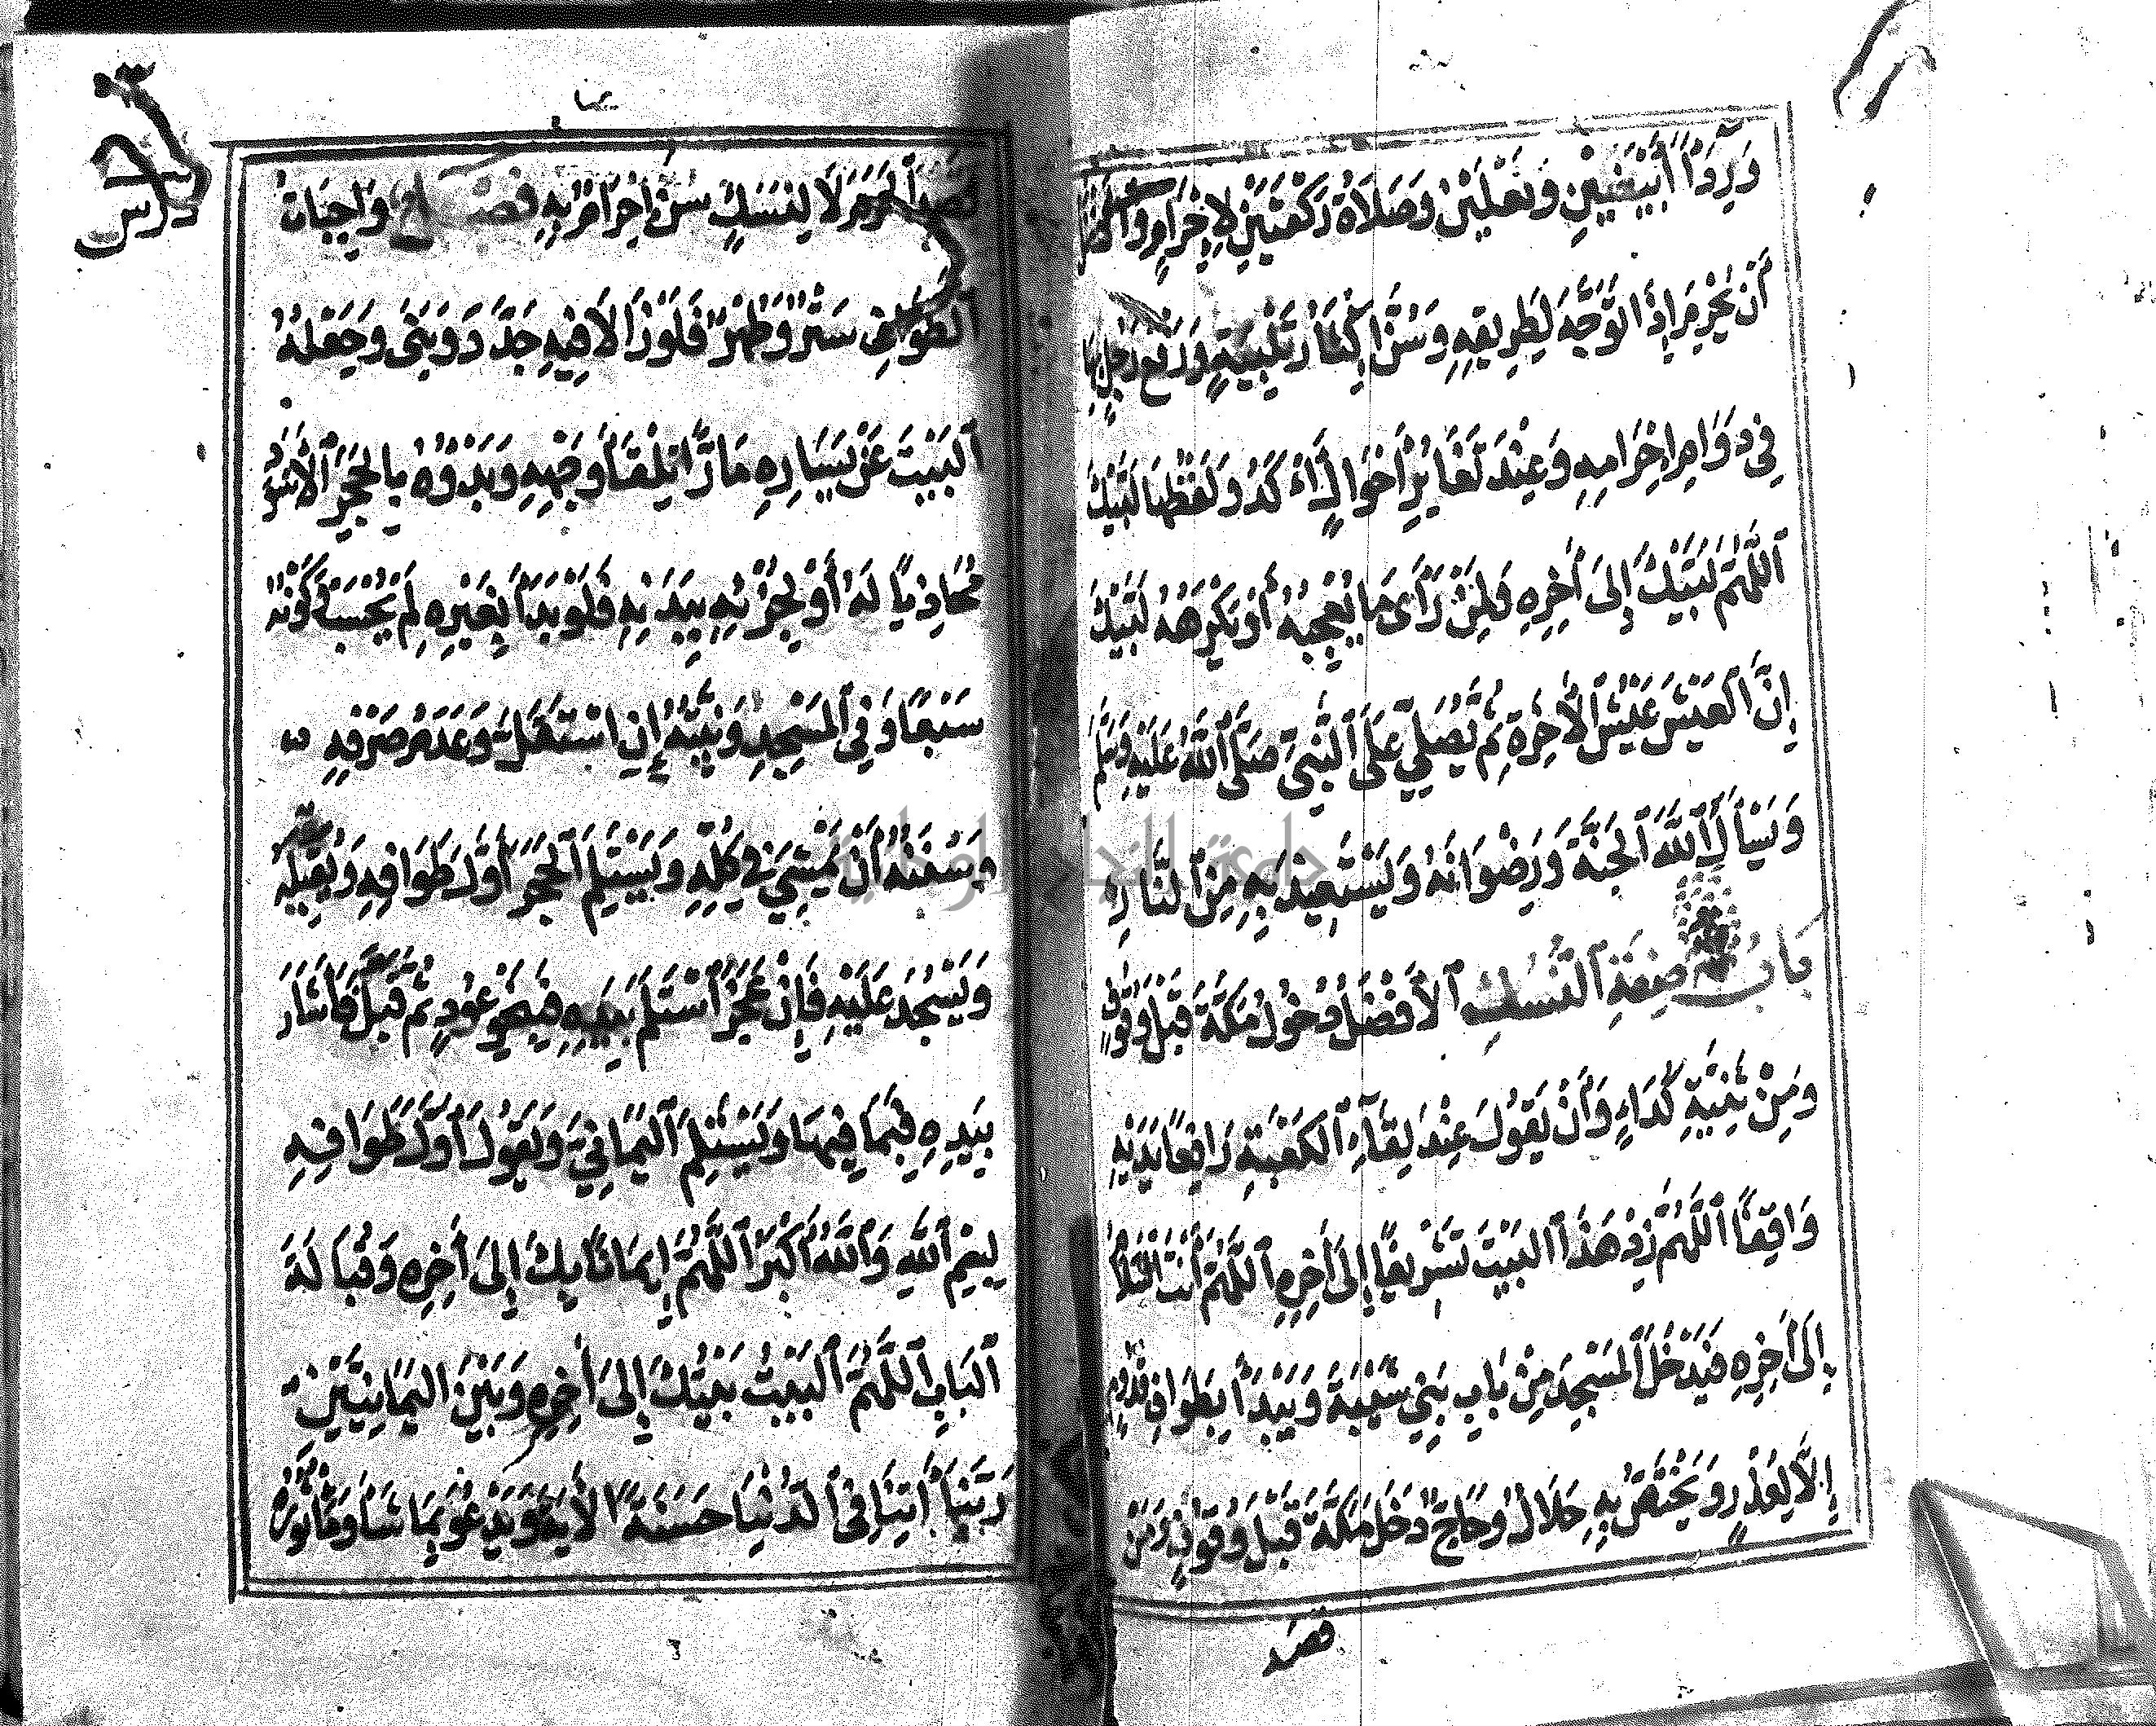 وَرِدَاءً أَبْيَضَيْنِ وَنَعْلَيْنِ وَصَلَاةُ رَكْعَتَيْنِ لِإِحْرَامٍ وَالأَفْضَلُ
أَنْ يُحْرِمَ إِذَا تَوَجَّهَ لِطَرِيقِهِ وَسُنَّ إِكْثَارُ تَلْبِيَةٍ وَرَفْعُ رَجُلٍ بِهَا
فِي دَوَامِ إِحْرَامِهِ وَعِنْدَ تَغَايُرِ أَحْوَالٍ أَكَدُ وَلَفْظُهَا لَبَّيْكَ
اللَّهُمَّ لَبَّيْكَ إِلَى أَخِرِهِ وَلِمَنْ رَأَى مَا يُعْجِبُهُ أَوْ يَكْرَهُهُ لَبَّيْكَ
إِنَّ الْعَيْشَ عَيْشُ الْأَخِرَةِ ثُمَّ يُصَلِّي عَلَى النَّبِيِّ صَلَّى اللَّهُ عَلَيْهِ وَسَلَّمَ
وَيَسْأَلُ اللَّهَ الْجَنَّةَ وَرِضْوَانَهُ وَيَسْتَعِيذُ بِهِ مِنَ النَّارِ
بَابُ صِفَةِ النُّسُكِ الأَفْضَلُ دُخُولُ مَكَّةَ قَبْلَ وُقُوفٍ
وَمِنْ ثَنِيَّةِ كَدَاءٍ وَأَنْ يَقُولَ عِنْدَ لِقَاءِ الْكَعْبَةِ رَافِعًا يَدَيْهِ
وَاقِفًا اللَّهُمَّ زِدْ هَذَا الْبَيْتَ تَشْرِيفًا إِلَى أَخِرِهِ اللَّهُمَّ أَنْتَ السَّلَامُ
إِلَى أَخِرِهِ فَيَدْخُلَ الْمَسْجِدَ مِنْ بَابِ بَنِي شَيْبَةَ وَيَبْدَأُ بِطَوَافِ قُدُومٍ
إِلَّا لِعُذْرٍ وَيَخْتَصُّ بِهِ حَلَالٌ وَحَاجٌّ دَخَلَ مَكَّةَ قَبْلَ وُقُوفٍ وَمَنْ
قصد
قَصَدَ الْحَرَمَ لَا لِنُسُكٍ سُنَّ إِحْرَامٌ بِهِ فَصْلٌ وَاجِبَاتُ
الطَّوَافِ سَتْرٌ وَطُهْرٌ فَلَوْ زَالَا فِيهِ جَدَّدَ وَبَنَى وَجَعْلُهُ
الْبَيْتَ عَنْ يَسَارِهِ مَارًّا تِلْقَاءَ وَجْهِهِ وَبَدْؤُهُ بِالْحَجَرِ الْأَسْوَدِ
مُحَاذِيًا لَهُ أَوْ لِجُزْئِهِ بِبَدَنِهِ فَلَوْ بَدَأَ بِغَيْرِهِ لَمْ يُحْسَبْ وَكَوْنُهُ
سَبْعًا وَفِي الْمَسْجِدِ وَنِيَّتُهُ إِنِ اسْتَقَلَّ وَعَدَمُ صَرْفِهِ
وَسُنَنُهُ أَنْ يَمْشِيَ فِي كُلِّهِ وَيَسْتَلِمَ الْحَجَرَ أَوَّلَ طَوَافِهِ وَيُقَبِّلَهُ
وَيَسْجُدَ عَلَيْهِ فَإِنْ عَجَزَ اسْتَلَمَ بِيَدِهِ فَبِنَحْوِ عُودٍ ثُمَّ قَبَّلَ فَأَشَارَ
بِيَدِهِ فَبِمَا فِيهَا وَيَسْتَلِمَ الْيَمَانِيَ وَيَقُولُ أَوَّلَ طَوَافِهِ
بِسْمِ اللَّهِ وَاللَّهُ أَكْبَرُ اللَّهُمَّ إِيمَانًا بِكَ إِلَى أَخِرِهِ وَقُبَالَةَ
الْبَابِ اللَّهُمَّ الْبَيْتُ بَيْتُكَ إِلَى أَخِرِهِ وَبَيْنَ الْيَمَانِيَيْنِ
رَبَّنَا أَتِنَا فِي الدُّنْيَا حَسَنَةً الْأَيَةَ وَيَدْعُو بِمَا شَاءَ وَمَأْثُورُهُ